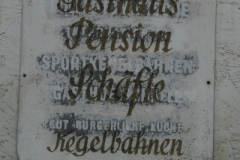 Gasthaus
Pension
SPORTKEGELBAHNEN
Schäfle
GUT BÜRGERLICHE KÜCHE
Kegelbahnen